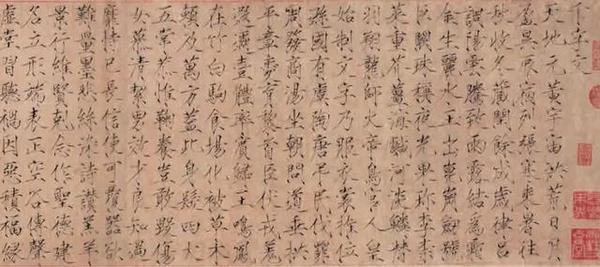 千字文
天地元黄宇宙洪荒日月
盈昃辰宿列張寒來暑往
秋收冬藏閏餘成歲律吕
調陽雲騰致雨露結為霜
金生麗水玉出崑岡劍號
巨闕珠稱夜光果珍李柰
菜重芥薑海鹹河淡鱗潛
羽翔龍師火帝鳥官人皇
始制文字乃服衣裳推位
遜國有虞陶唐弔民伐罪
周發商湯坐朝問道垂拱
平章愛育黎首臣伏戎羌
遐邇壹體率賓歸王鳴鳳
在竹白駒食場化被草木
賴及萬方蓋此身髮四大
五常恭惟鞠養豈敢毀傷
女慕清潔男效才良知過
靡恃己長信使可覆器欲
難量墨悲絲染詩讚羔羊
景行維賢克念作聖德建
名立形端表正空谷傳聲
虛堂習聽禍因惡積福緣